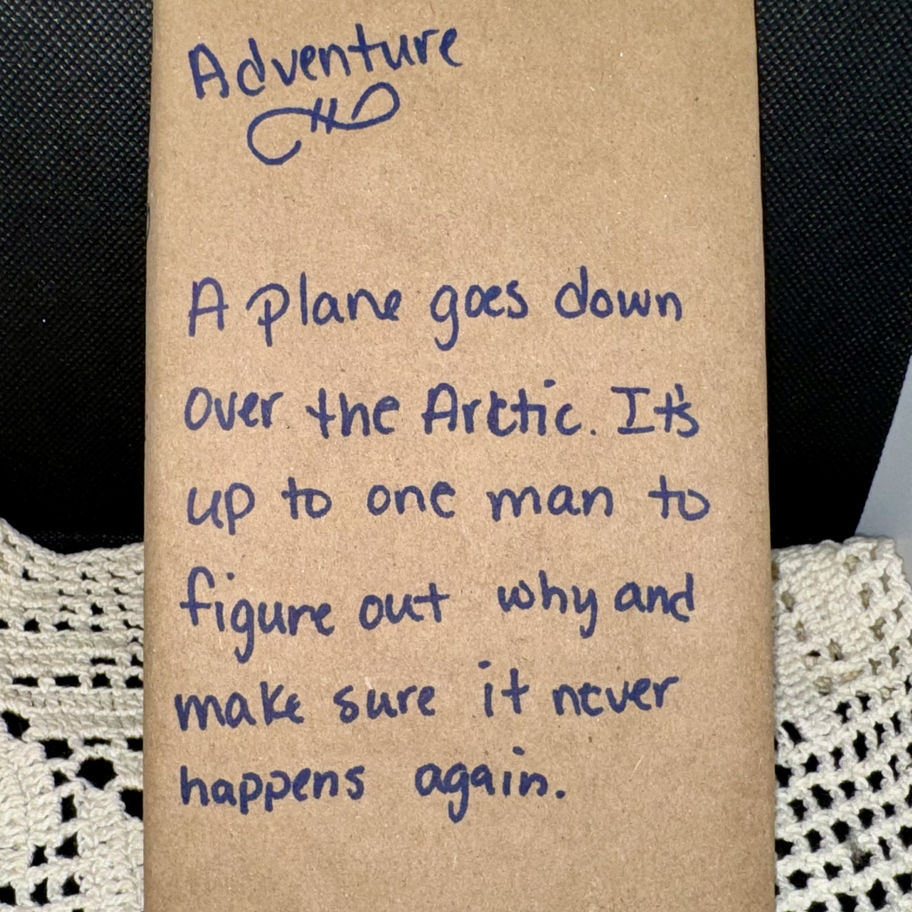 Adventure
A plane goes down
over the Arctic. It's
up to one man to
figure out why and
make sure it never
happens again.